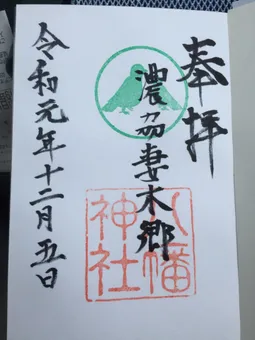 奉拝
濃刕妻木郷
八幡神社
令和元年十二月五日